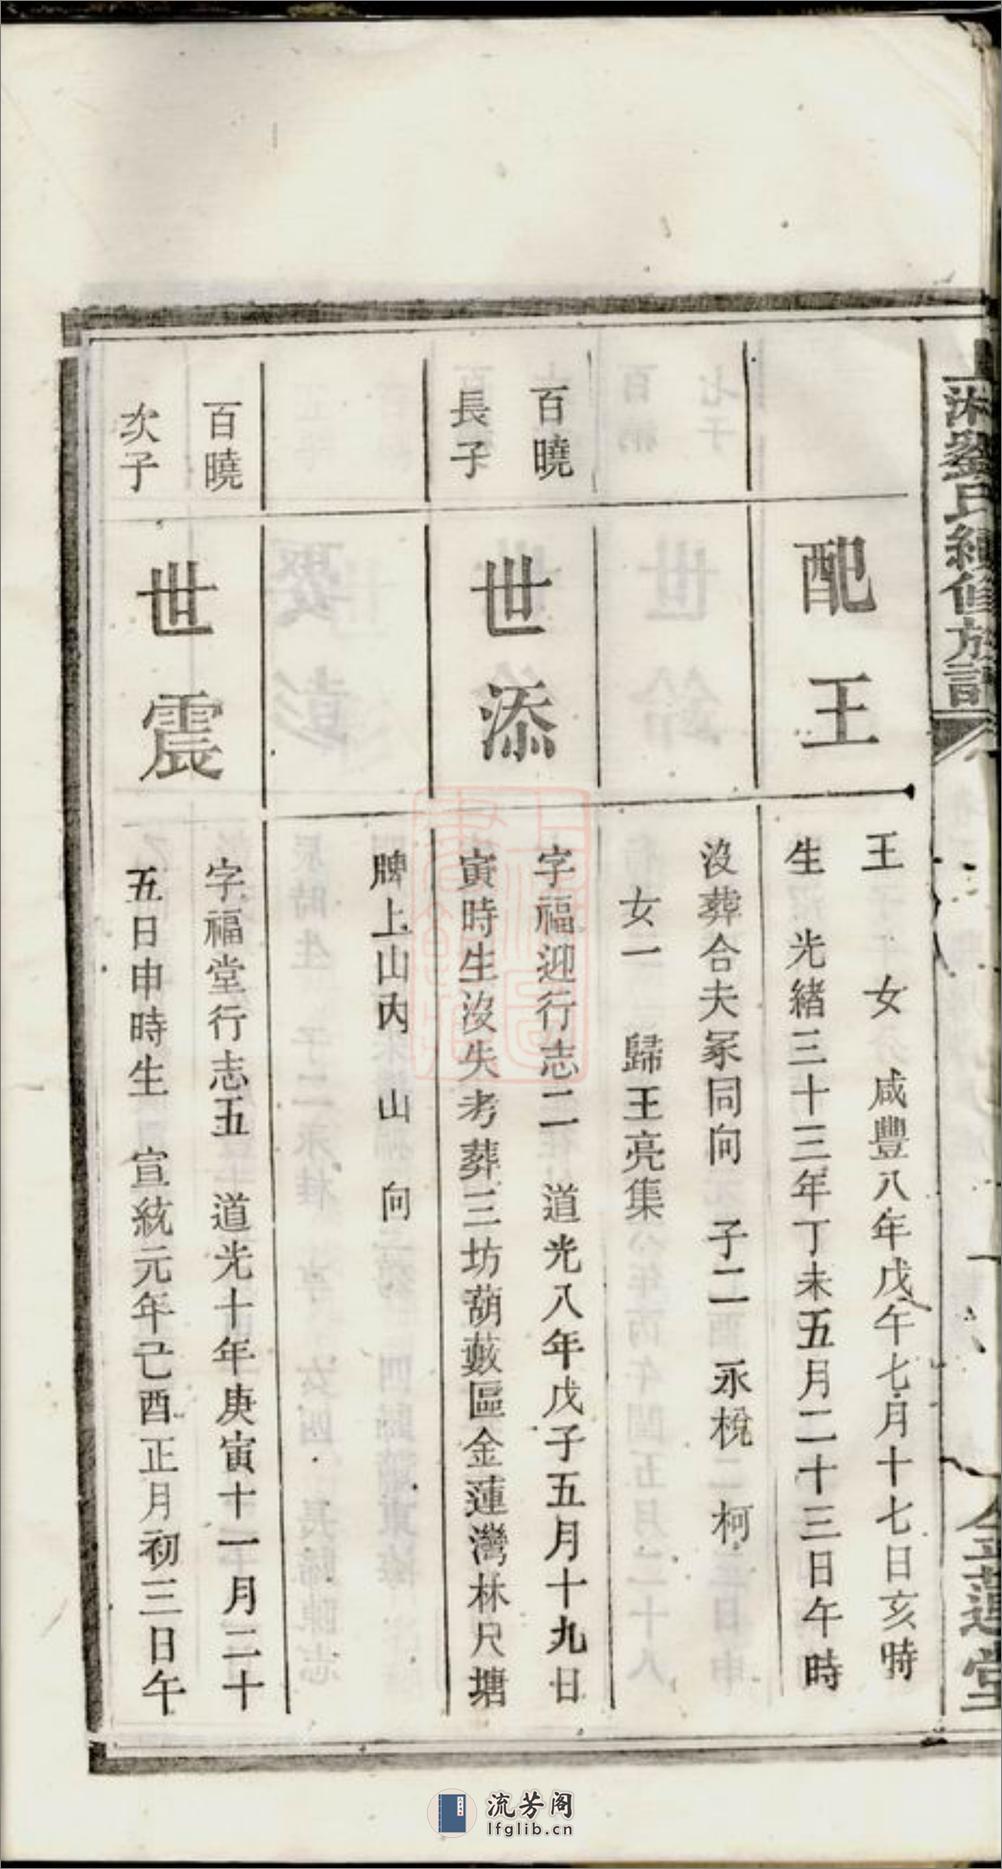 上湘劉氏續修族譜
金蓮堂
配王
王 女 咸豐八年戊午七月十七日亥時
生 光緒三十三年丁未五月二十三日午時
沒葬合夫冢同向 子二 永棁 柯
女一 歸王亮集
百曉
長子
世添
字福迎行志二 道光八年戊子五月十九日
寅時生沒失考葬三坊葫藪區金蓮灣林尺塘
牌上山內 山 向
百曉
次子
世震
字福堂行志五 道光十年庚寅十一月二十
五日申時生 宣統元年己酉正月初三日午
流芳阁
lfglib.cn